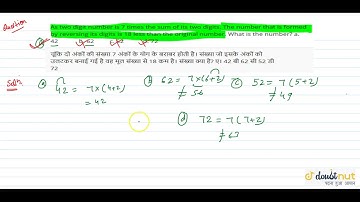 Question
As two digit number is 7 times the sum of its two digits. The number that is formed
by reversing its digits is 18 less than the original number. What is the number? a.
42 62 52 72
चूंकि दो अंकों की संख्या 7 अंकों के योग के बराबर होती है। संख्या जो इसके अंकों को
उलटकर बनाई गई है वह मूल संख्या से 18 कम है। संख्या क्या है? ए। 42 बी 62 सी 52 डी
72
Soln
(a) 42 = 7×(4+2)
= 42
(b) 62 = 7×(6+2)
≠ 56
(c) 52 = 7(5+2)
≠ 49
(d) 72 = 7(7+2)
≠ 63
doubtnut